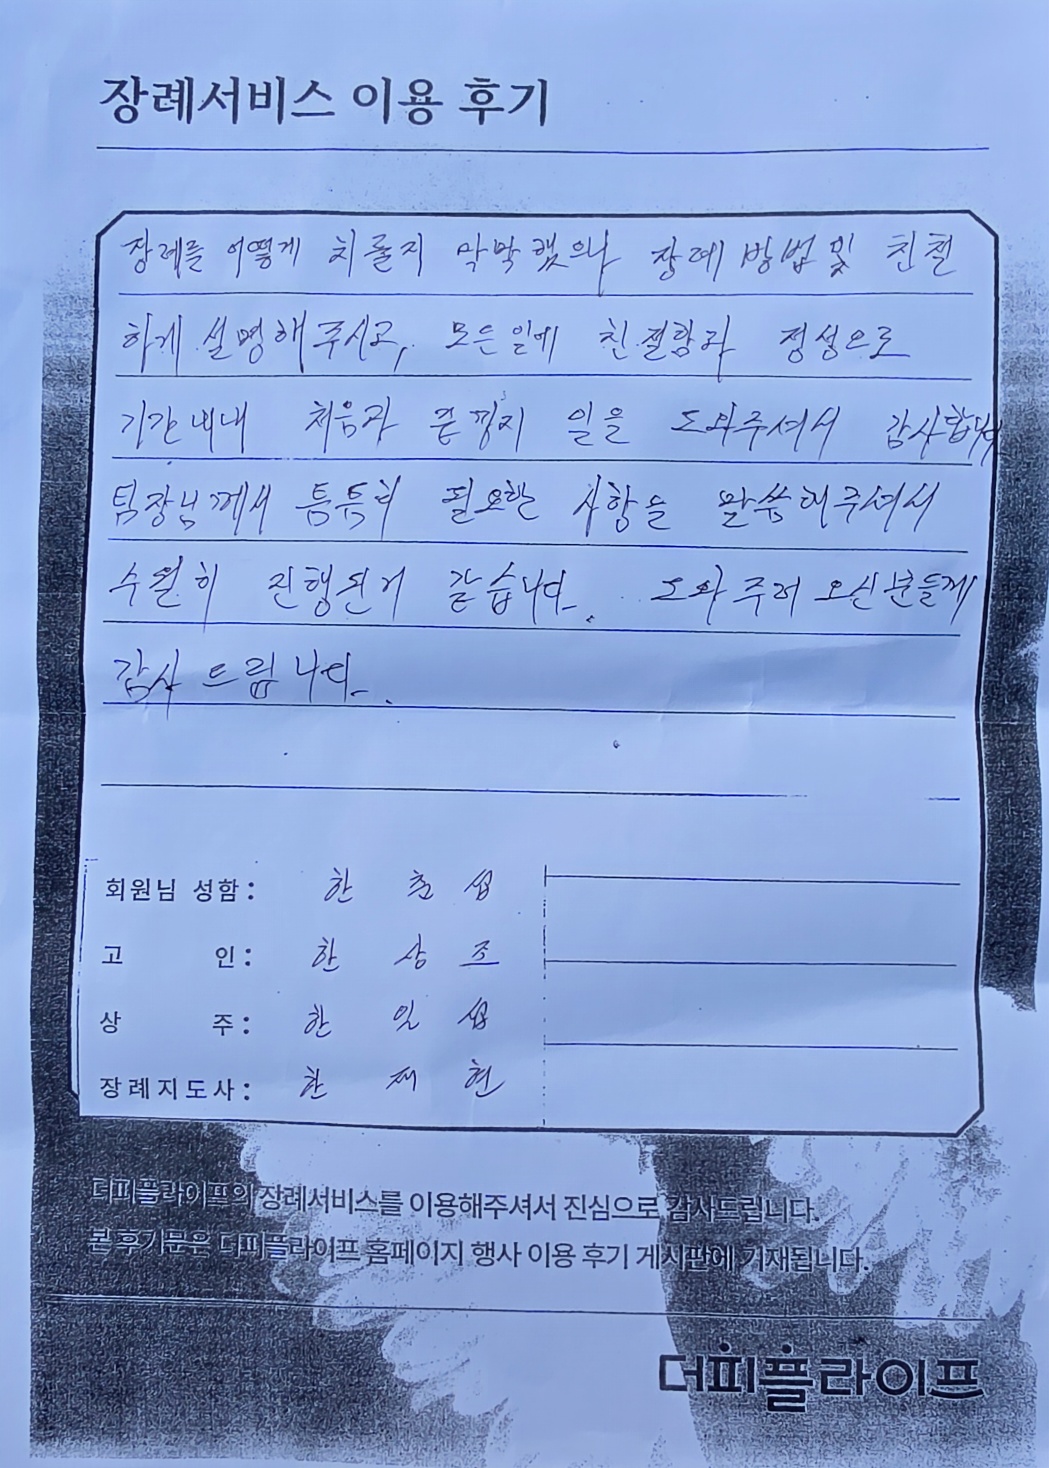 장례서비스 이용 후기
장례를 어떻게 치룰지 막막했으나 장례 방법 및 친절
하게 설명해 주시고, 모든일에 친절함과 정성으로
기간내내 처음과 끝까지 일을 도와주셔서 감사합니다
팀장님께서 틈틈히 필요한 사항을 말씀해주셔서
수월히 진행된거 같습니다. 도와주러 오신분들께
감사드립니다.
회원님 성함: 한 춘 섭
고 인: 한 상 조
상 주: 한 일 섭
장례지도사: 한 재 현
더피플라이프의 장례서비스를 이용해주셔서 진심으로 감사드립니다.
본 후기문은 더피플라이프 홈페이지 행사 이용 후기 게시판에 기재됩니다.
더피플라이프